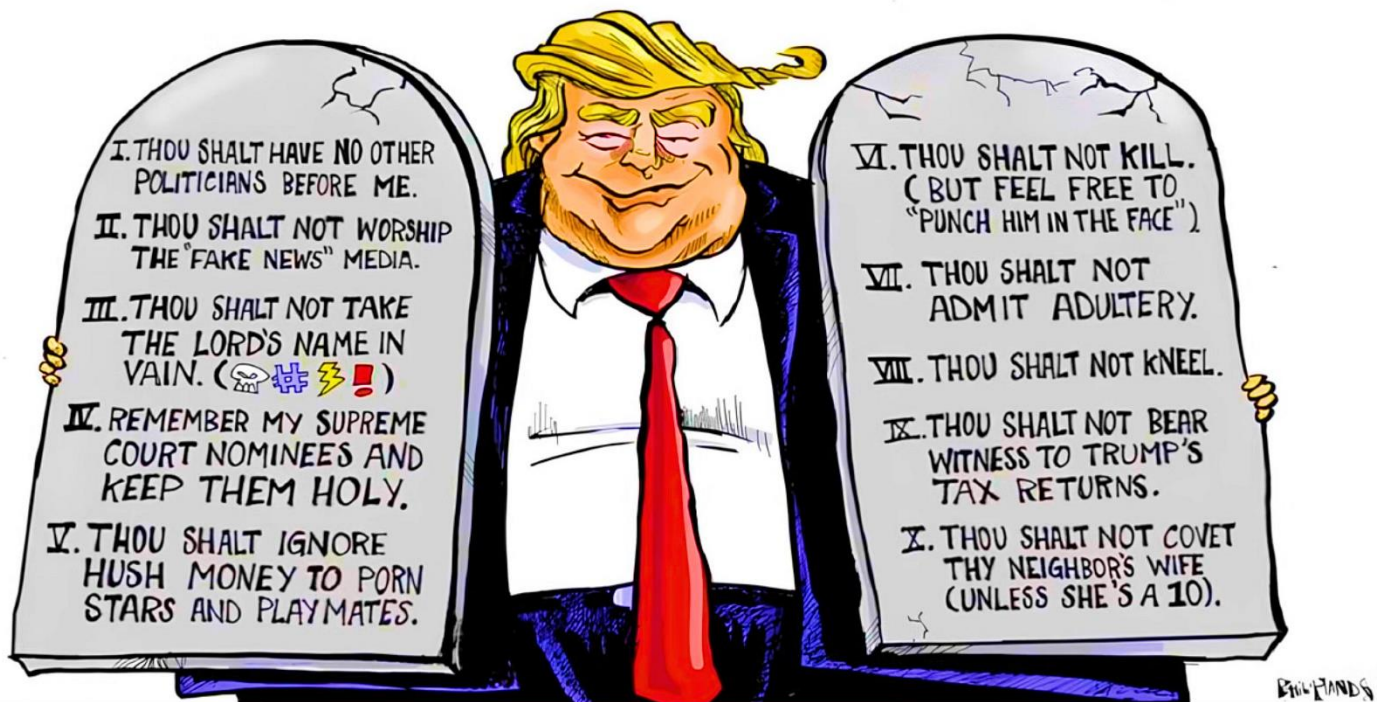 I. THOU SHALT HAVE NO OTHER
POLITICIANS BEFORE ME.
II. THOU SHALT NOT WORSHIP
THE "FAKE NEWS" MEDIA.
III. THOU SHALT NOT TAKE
THE LORD'S NAME IN
VAIN. (💀#⚡!)
IV. REMEMBER MY SUPREME
COURT NOMINEES AND
KEEP THEM HOLY.
V. THOU SHALT IGNORE
HUSH MONEY TO PORN
STARS AND PLAYMATES.
VI. THOU SHALT NOT KILL.
(BUT FEEL FREE TO
"PUNCH HIM IN THE FACE")
VII. THOU SHALT NOT
ADMIT ADULTERY.
VIII. THOU SHALT NOT KNEEL.
IX. THOU SHALT NOT BEAR
WITNESS TO TRUMP'S
TAX RETURNS.
X. THOU SHALT NOT COVET
THY NEIGHBOR'S WIFE
(UNLESS SHE'S A 10).
PHIL HANDS